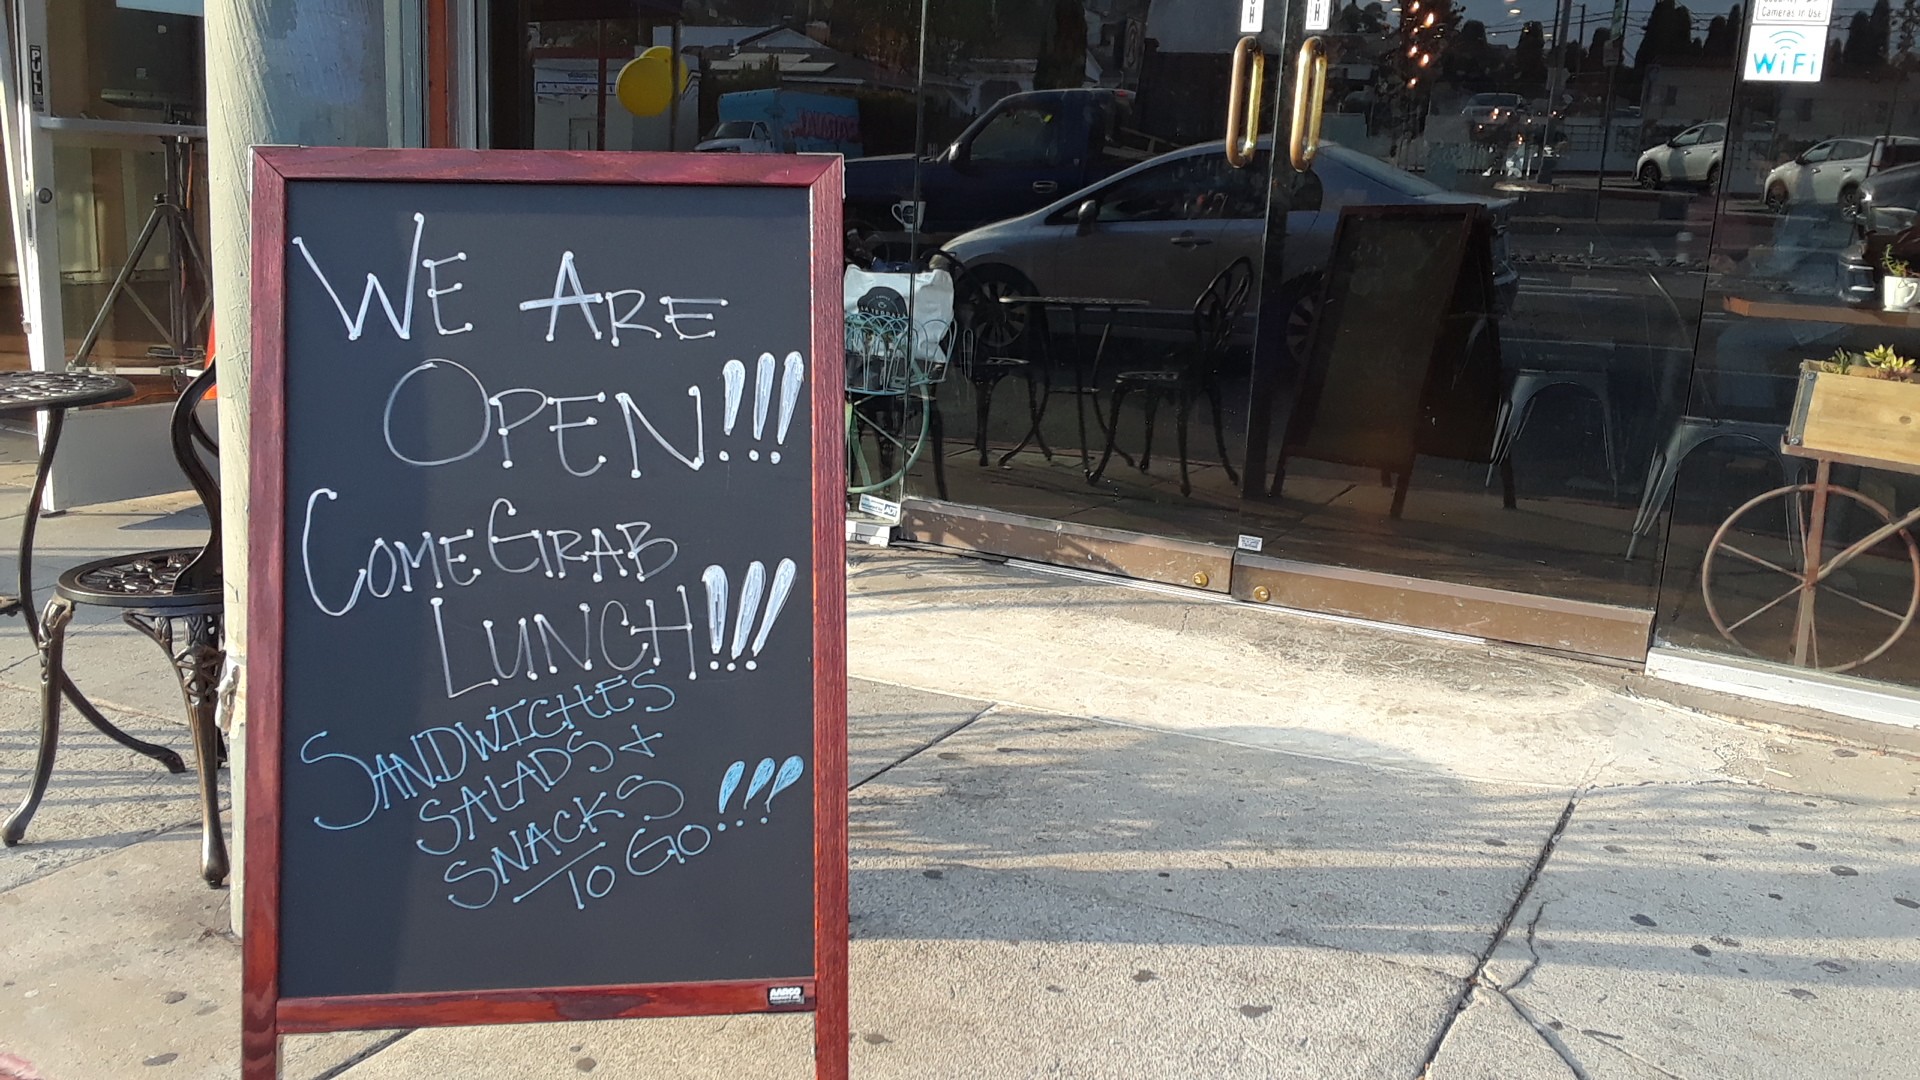 WE ARE
OPEN!!!
COME GRAB
LUNCH!!!
SANDWICHES
SALADS +
SNACKS
TO GO!!!
AARCO
PULL
Cameras in Use
WiFi